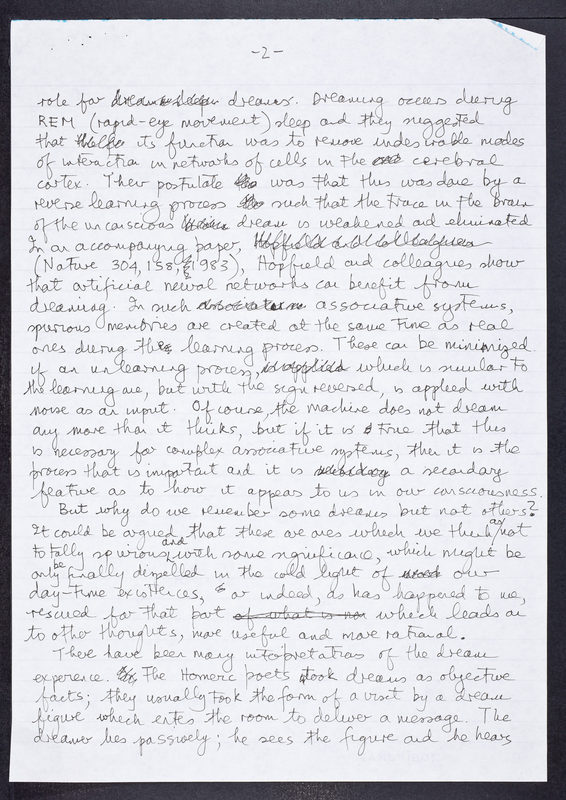 -2-
role for dreams. Dreaming occurs during
REM (rapid-eye movement) sleep and they suggested
that its function was to remove undesirable modes
of interaction in networks of cells in the cerebral
cortex. Their postulate was that this was done by a
reverse learning process such that the trace in the brain
of the unconscious dream is weakened and eliminated
In an accompanying paper, Hopfield and colleagues
(Nature 304, 158, 1983), Hopfield and colleagues show
that artificial neural networks can benefit from
dreaming. In such associative systems,
spurious memories are created at the same time as real
ones during the learning process. These can be minimized
if an unlearning process, is applied which is similar to
the learning one, but with the sign reversed, is applied with
noise as an input. Of course, the machine does not dream
any more than it thinks, but if it is true that this
is necessary for complex associative systems, then it is the
process that is important and it is a secondary
feature as to how it appears to us in our consciousness.
But why do we remember some dreams but not others?
It could be argued that these are ones which we think as not
totally spurious, and with some significance, which might be
only be finally dispelled in the cold light of our
day-time existences, or indeed, as has happened to me,
rescued for that part of what is not which leads on
to other thoughts, more useful and more rational.
There have been many interpretations of the dream
experience. The Homeric poets took dreams as objective
facts; they usually took the form of a visit by a dream
figure which enters the room to deliver a message. The
dreamer lies passively; he sees the figure and he hears